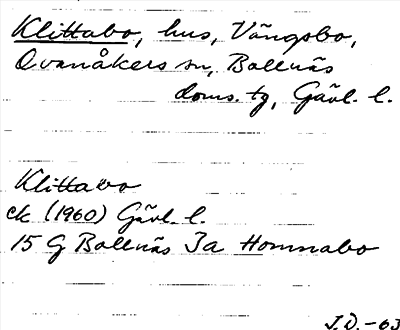 Klittabo, hus, Vängsbo,
Ovanåkers sn, Bollnäs
doms. tg, Gävl. l.
Klittabo
ek (1960) Gävl. l.
15 G Bollnäs 3a Homnabo
J.D. -63